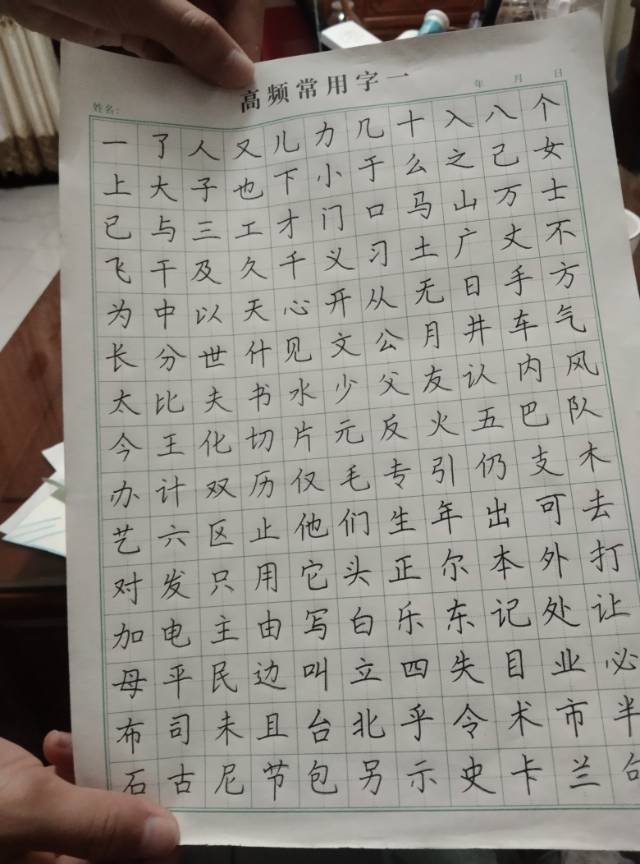 高频常用字一
姓名: 年 月 日
一了人又儿力几十入八个
上大子也下小于么之己女
已与三工才门口马山万士
飞干及久千义习土广丈不
为中以天心开从无日手方
长分世什见文公月井车气
太比夫书水少父友认内风
今王化切片元反火五巴队
办计双历仅毛专引仍支木
艺六区止他们生年出可去
对发只用它头正尔本外打
加电主由写白乐东记处让
母平民边叫立四失目业必
布司未且台北乎令术市半
石古尼节包另示史卡兰句